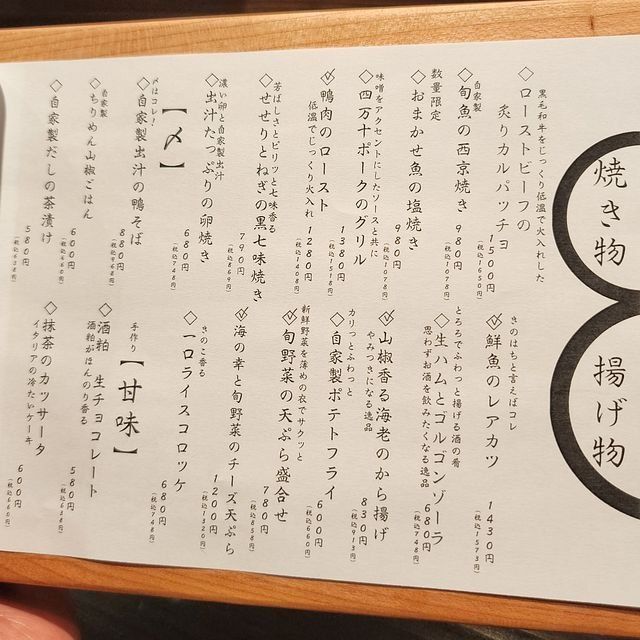 焼き物
黒毛和牛をじっくり低温で火入れした
◇ローストビーフの
炙りカルパッチョ
1500円
(税込1650円)
自家製
◇旬魚の西京焼き
980円
(税込1078円)
数量限定
◇おまかせ魚の塩焼き
980円
(税込1078円)
味噌をアクセントにしたソースと共に
◇四万十ポークのグリル
1380円
(税込1518円)
◇鴨肉のロースト
低温でじっくり火入れ
1280円
(税込1408円)
芳ばしさとピリッと七味香る
◇せせりとねぎの黒七味焼き
790円
(税込869円)
濃い卵と自家製出汁
◇出汁たっぷりの卵焼き
680円
(税込748円)
【〆】
〆はコレ!
◇自家製出汁の鴨そば
880円
(税込968円)
自家製
◇ちりめん山椒ごはん
600円
(税込660円)
◇自家製だしの茶漬け
580円
(税込638円)
揚げ物
きのはちと言えばコレ
◇鮮魚のレアカツ
1430円
(税込1573円)
とろろでふわっと揚げる酒の肴
◇生ハムとゴルゴンゾーラ
思わずお酒を飲みたくなる逸品
680円
(税込748円)
◇山椒香る海老のから揚げ
やみつきになる逸品
830円
(税込913円)
カリっとふわっと
◇自家製ポテトフライ
600円
(税込660円)
新鮮野菜を薄めの衣でサクッと
◇旬野菜の天ぷら盛合せ
780円
(税込858円)
◇海の幸と旬野菜のチーズ天ぷら
1200円
(税込1320円)
きのこ香る
◇一口ライスコロッケ
680円
(税込748円)
【甘味】
手作り
◇酒粕 生チョコレート
酒粕がほんのり香る
580円
(税込638円)
◇抹茶のカッサータ
イタリアの冷たいケーキ
600円
(税込660円)